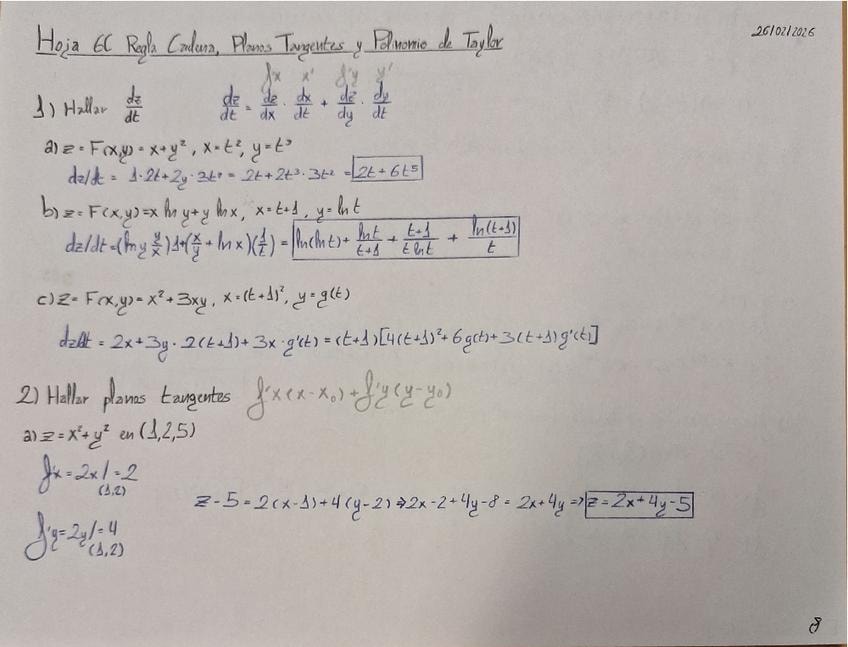 Hoja 6C Regla Cadena, Planos Tangentes y Polinomio de Taylor
26/02/2026
f'x x' f'y y'
1) Hallar dz/dt dz/dt = dz/dx · dx/dt + dz/dy · dy/dt
a) z = F(x,y) = x+y², x=t², y=t³
dz/dt = 1·2t+2y·3t² = 2t+2t³·3t² = 2t+6t⁵
b) z = F(x,y) = x ln y + y ln x, x=t+1, y=ln t
dz/dt = (ln y y/x)1+(x/y + ln x)(1/t) = ln(ln t) + ln t/t+1 + t+1/t ln t + ln(t+1)/t
c) z = F(x,y) = x² + 3xy, x=(t+1)², y=g(t)
dz/dt = 2x+3y · 2(t+1)+3x·g'(t) = (t+1)[4(t+1)²+6g(t)+3(t+1)g'(t)]
2) Hallar planos tangentes f'x(x-x₀)+f'y(y-y₀)
a) z=x²+y² en (1,2,5)
f'x = 2x/ = 2
(1,2)
z-5 = 2(x-1)+4(y-2) ⇒ 2x-2+4y-8 = 2x+4y ⇒ z=2x+4y-5
f'y = 2y/ = 4
(1,2)
8